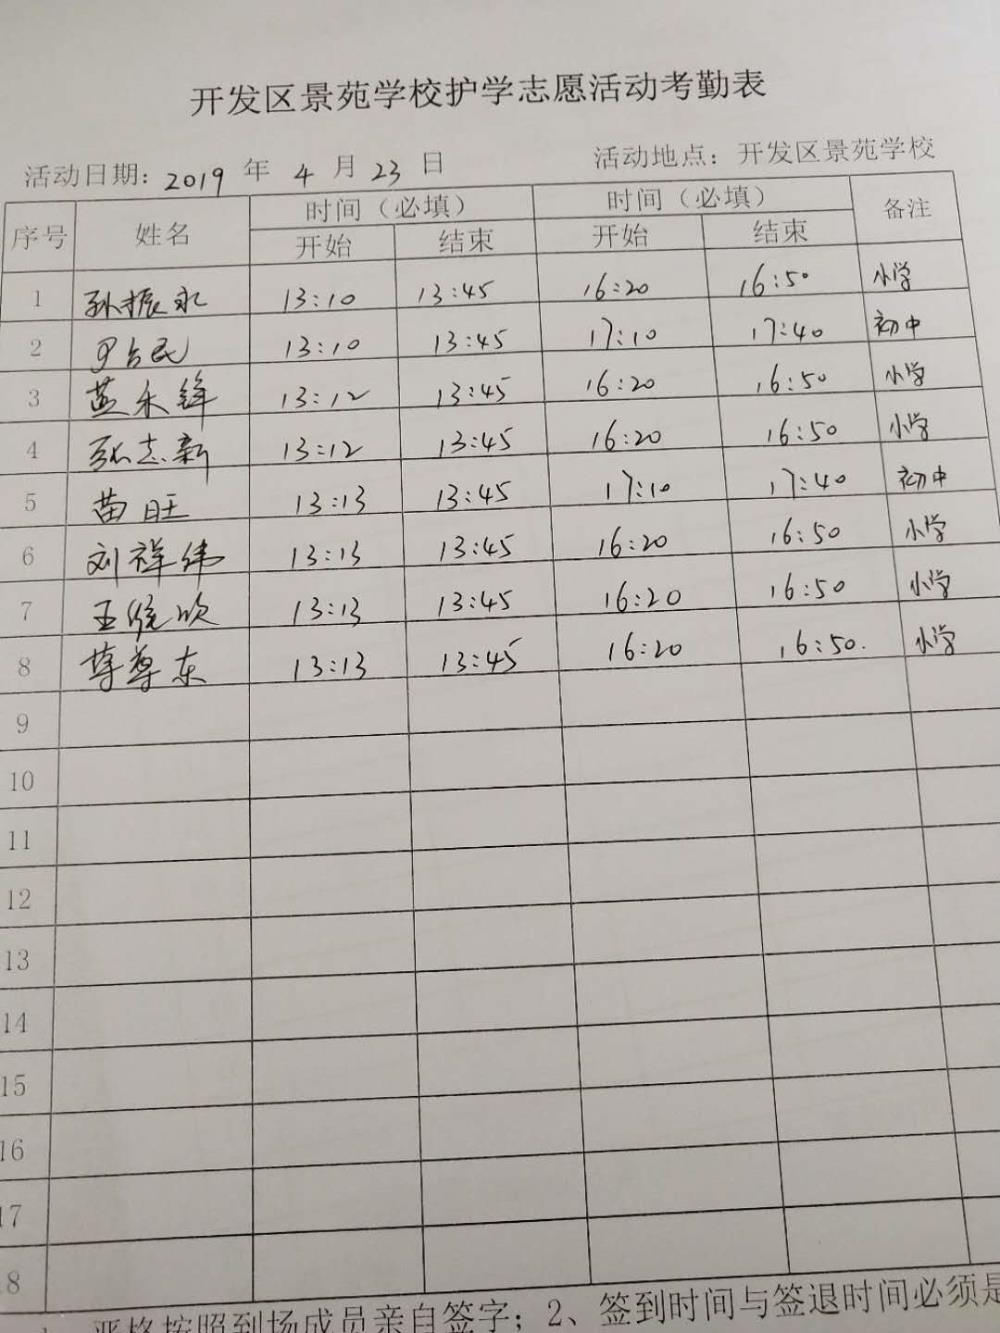 开发区景苑学校护学志愿活动考勤表
活动日期: 2019 年 4 月 23 日 活动地点: 开发区景苑学校
序号 姓名 时间（必填） 时间（必填） 备注
开始 结束 开始 结束
1 孙振永 13:10 13:45 16:20 16:50 小学
2 尹占民 13:10 13:45 17:10 17:40 初中
3 永锋 13:12 13:45 16:20 16:50 小学
4 张志新 13:12 13:45 16:20 16:50 小学
5 苗旺 13:13 13:45 17:10 17:40 初中
6 刘祥伟 13:13 13:45 16:20 16:50 小学
7 王 13:13 13:45 16:20 16:50 小学
8 尊东 13:13 13:45 16:20 16:50. 小学
9
10
11
12
13
14
15
16
17
8
严格按照到场成员亲自签字；2、签到时间与签退时间必须是